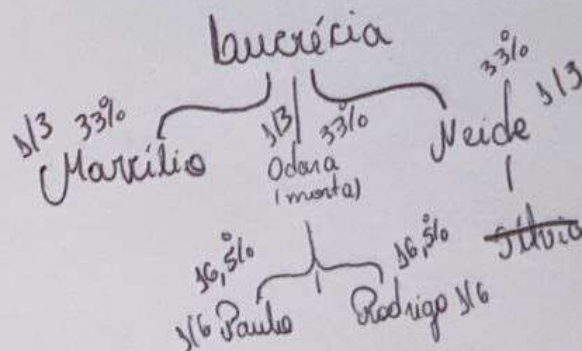 Lucrécia
1/3 33%
Marcílio
1/3 33%
Odara
(morta)
33%
Neide 1/3
Sílvia
16,5%
1/6 Paulo
16,5%
Rodrigo 1/6